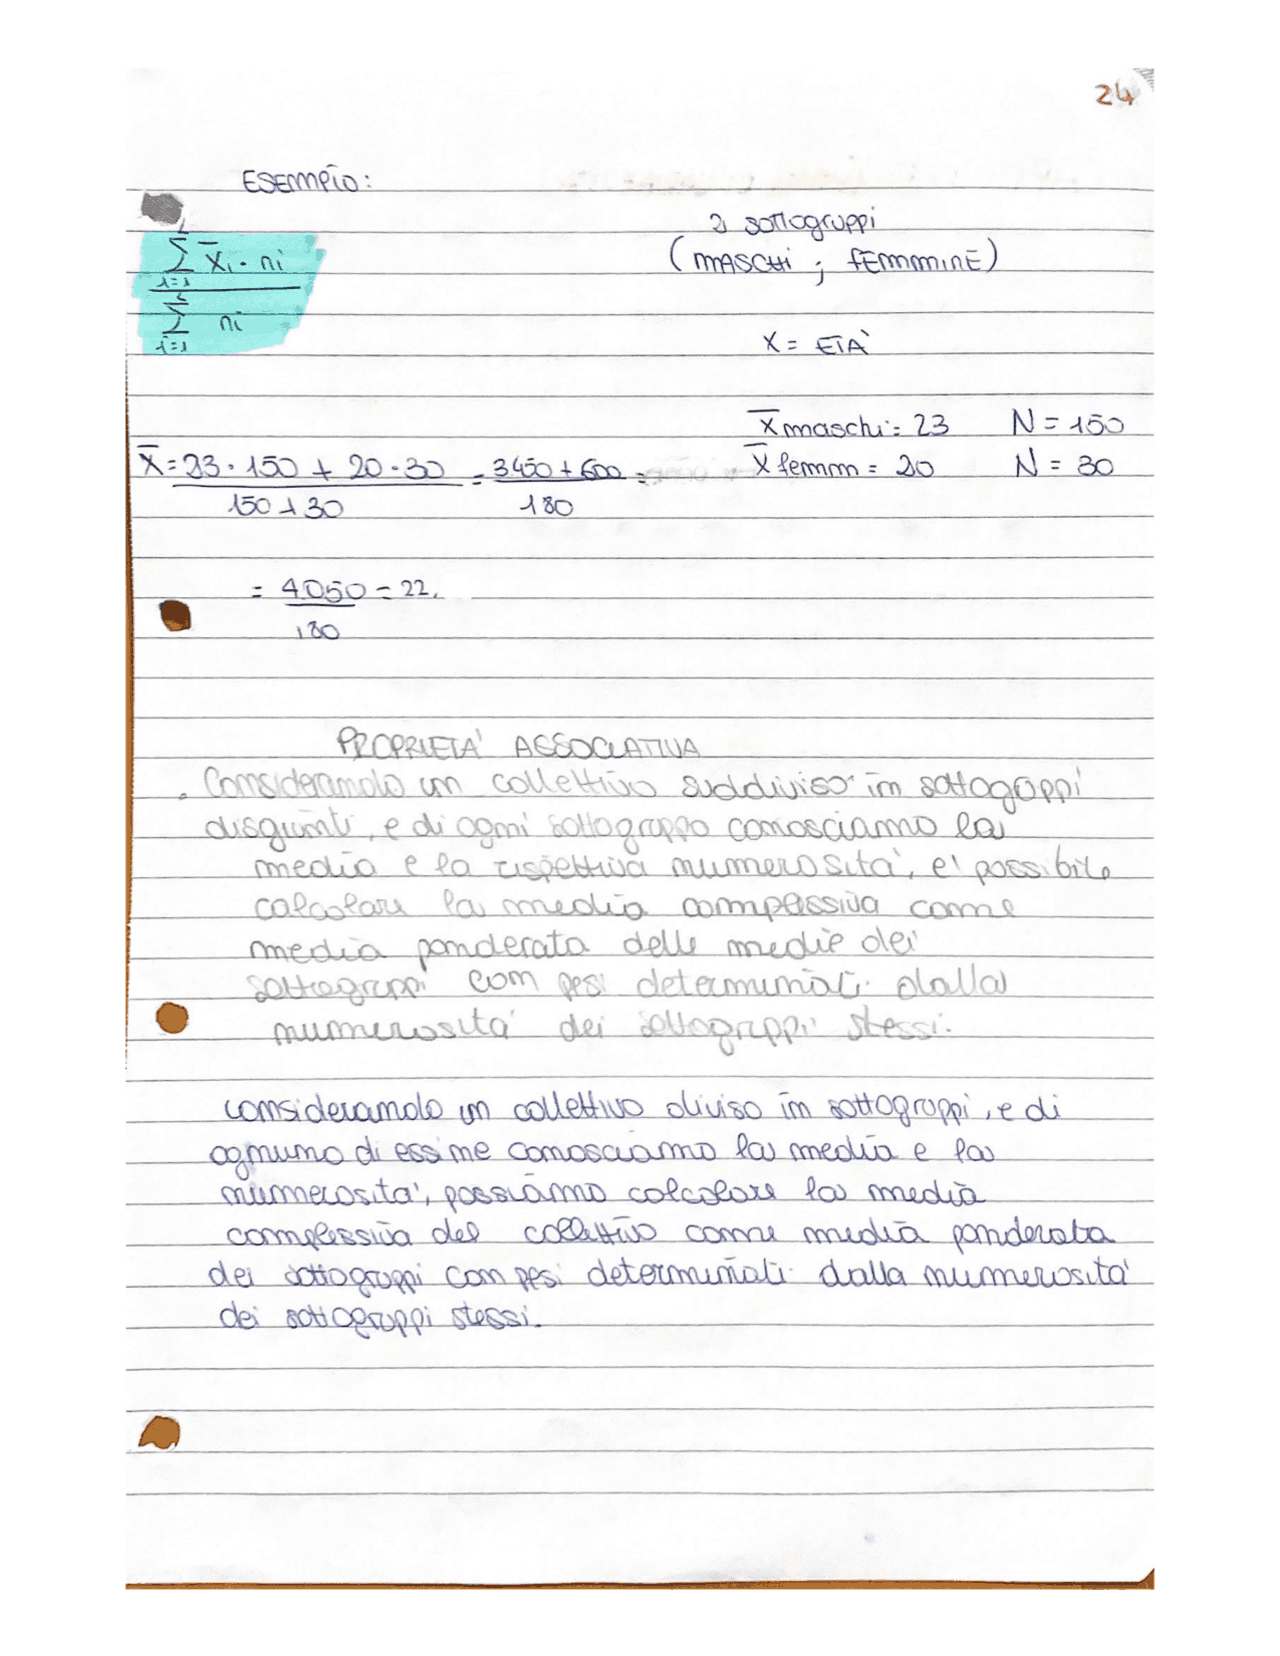 24
ESEMPIO:
2 sottogruppi
(MASCHI ; FEMMINE)
∑ x̄i · ni
i=1
∑ ni
i=1
X = ETÀ
x̄ maschi = 23 N = 150
x̄ femm = 20 N = 30
x̄ = 23 · 150 + 20 · 30 = 3450 + 600 =
150 + 30 180
= 4050 = 22,
180
PROPRIETA' ASSOCIATIVA
. Considerando un collettivo suddiviso in sottogruppi
disgiunti, e di ogni sottogruppo conosciamo la
media e la rispettiva numerosita', e' possibile
calcolare la media complessiva come
media ponderata delle medie dei
sottogruppi con pesi determinati dalla
numerosita' dei sottogruppi stessi.
considerando un collettivo diviso in sottogruppi, e di
ognuno di essi ne conosciamo la media e la
numerosita', possiamo calcolare la media
complessiva del collettivo come media ponderata
dei sottogruppi con pesi determinati dalla numerosita'
dei sottogruppi stessi.